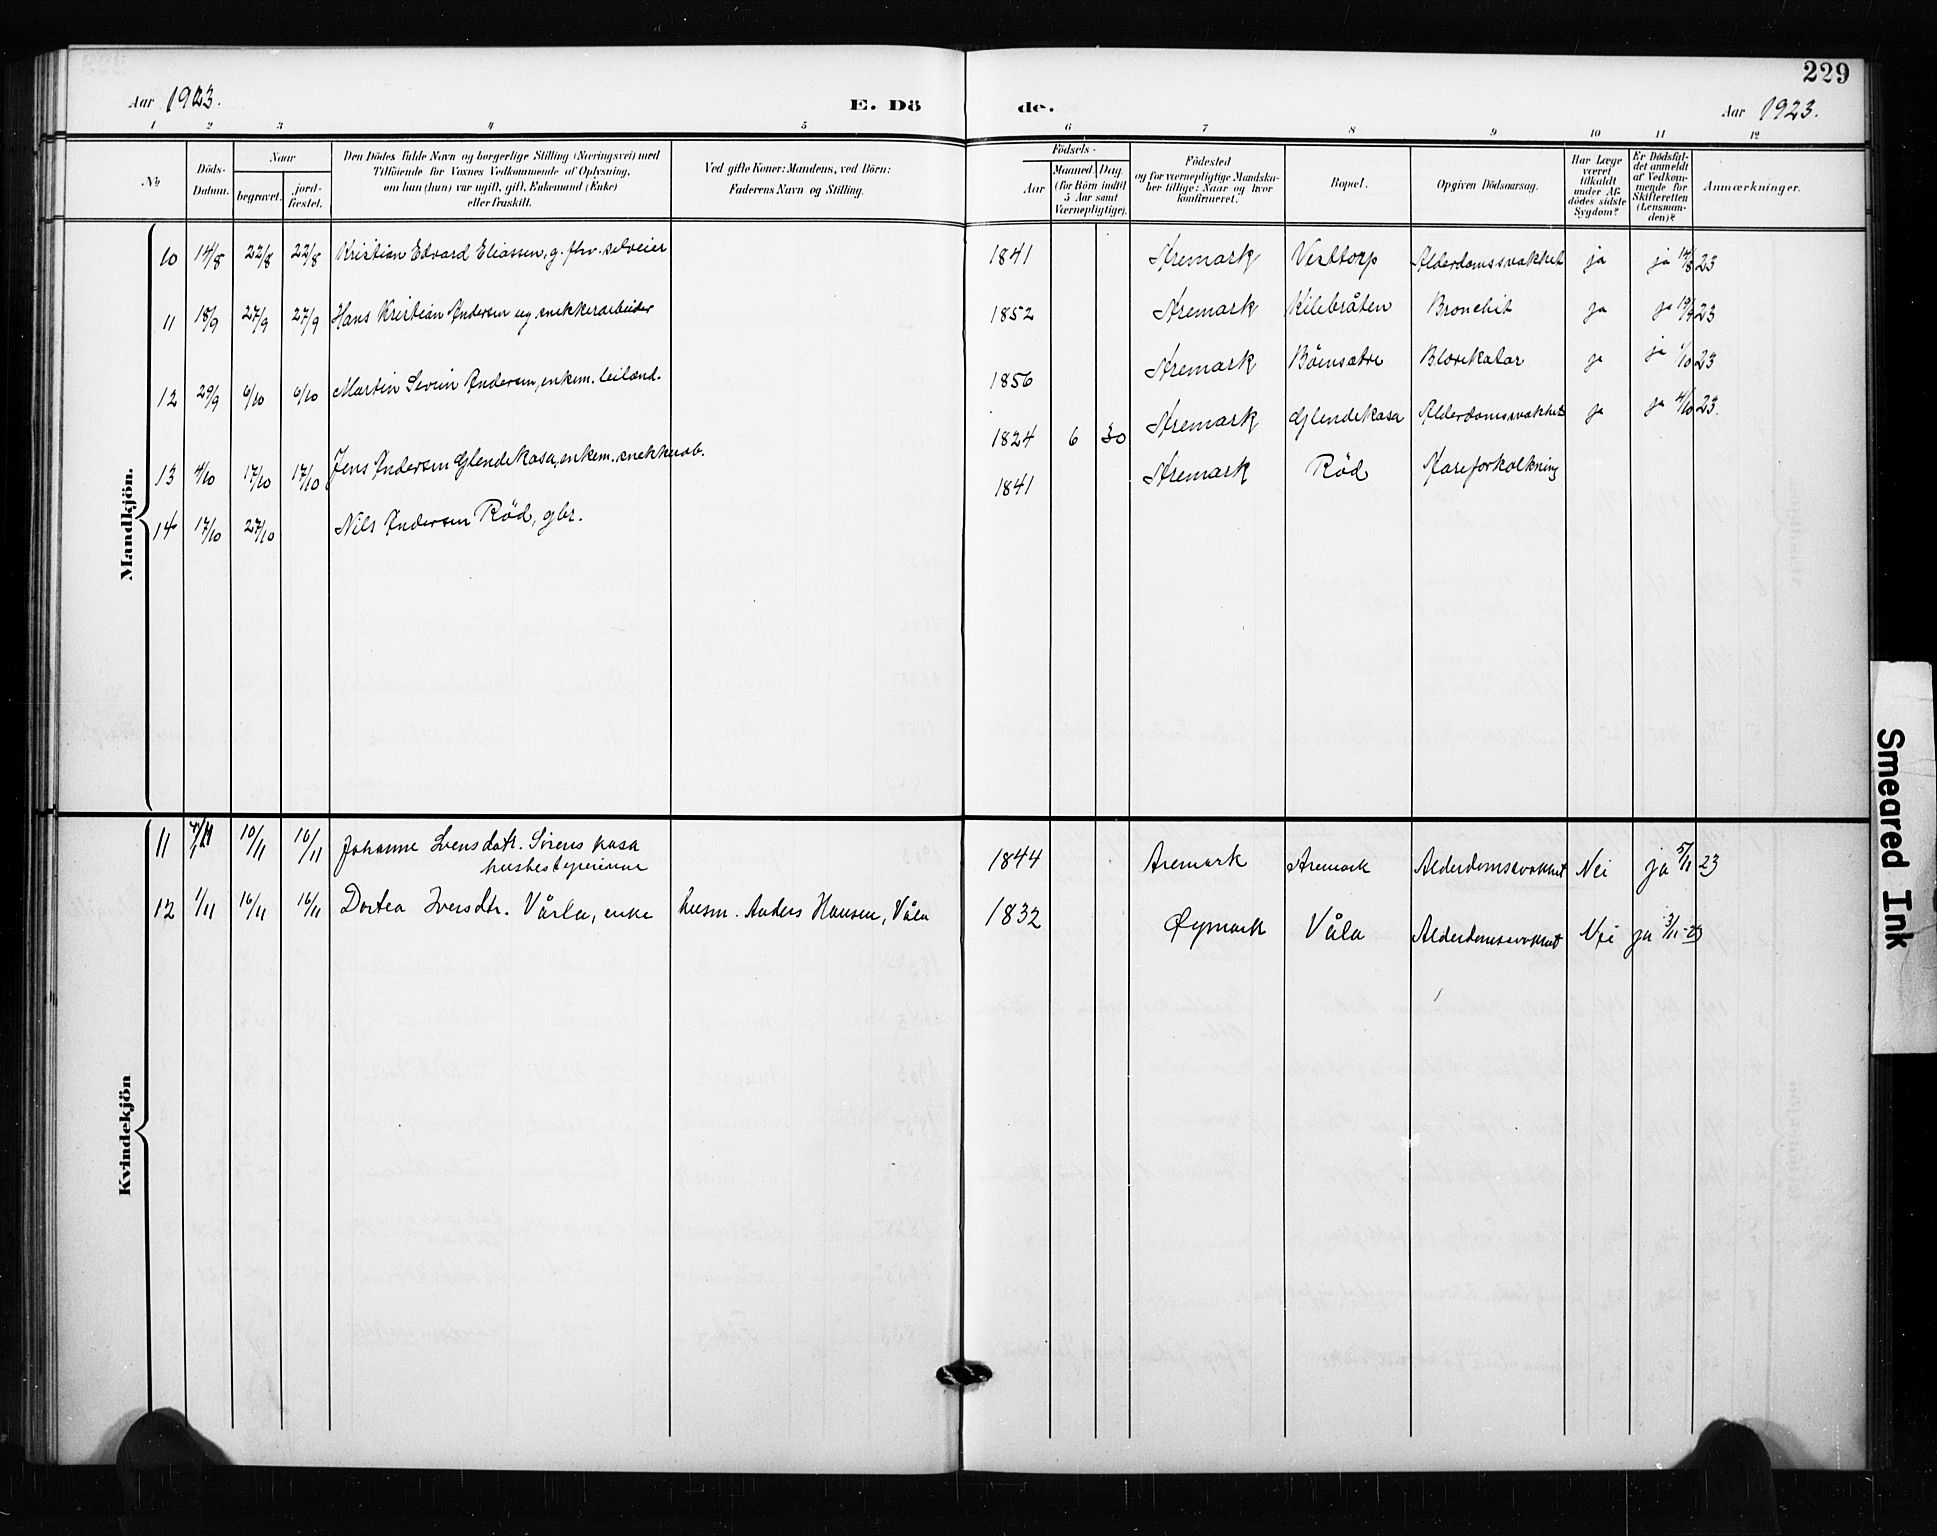 229
Aar 1923.
E. Döde.
Aar 1923.
1 2 3 4 5 6 7 8 9 10 11 12
No.
Döds-
Datum.
Naar
begravet.
jord-
fæstet.
Den Dödes fulde Navn og borgerlige Stilling (Næringsvei) med
Tilföiende for Voxnes Vedkommende af Oplysning,
om han (hun) var ugift, gift, Enkemand (Enke)
eller fraskilt.
Ved gifte Koner: Mandens, ved Börn:
Faderens Navn og Stilling.
Födsels-
Aar
Maaned.
Dag.
(for Börn indtil
5 Aar samt
Værnepligtige).
Födested
og for værnepligtige Mandska-
ber tillige: Naar og hvor
konfirmeret.
Bopæl.
Opgiven Dödsaarsag.
Har Læge
været
tilkaldt
under Af-
dödes sidste
Sygdom?
Er Dödsfal-
det anmeldt
af Vedkom-
mende for
Skifteretten
(Lensman-
den)?
Anmærkninger.
Mandkjön.
10 14/8 22/8 22/8 Kristian Edvard Eliassen, g. fhv. selveier 1841 Aremark Vesttorp Alderdomssvakhet ja ja 14/8 23
11 18/9 27/9 27/9 Hans Kristian Andersen ug snekkerarbeider 1852 Aremark Kilebråten Bronchit ja ja 19/9 23
12 29/9 6/10 6/10 Martin Severin Andersen, enkem. leilænd. 1856 Aremark Böensætre Blærekatar ja ja 1/10 23
13 4/10 17/10 17/10 Jens Andersen Glendekasa, enkem. snekkerarb. 1824 6 30 Aremark Glendekasa Alderdomssvakhet ja ja 4/10 23.
14 17/10 27/10 Nils Andersen Röd, gbr. 1841 Aremark Röd Åreforkalkning
Kvindekjön
11 10/11 16/11 Johanne Svensdatr. Sörenskasa
husbestyrerinne 1844 Aremark Aremark Alderdomssvakhet Nei ja 5/11 23
12 1/11 16/11 16/11 Dortea Iversdtr. Vårla, enke husm. Anders Hansen, Våla 1832 Öymark Våla Alderdomssvakhet Nei ja 3/11-23
Smeared Ink